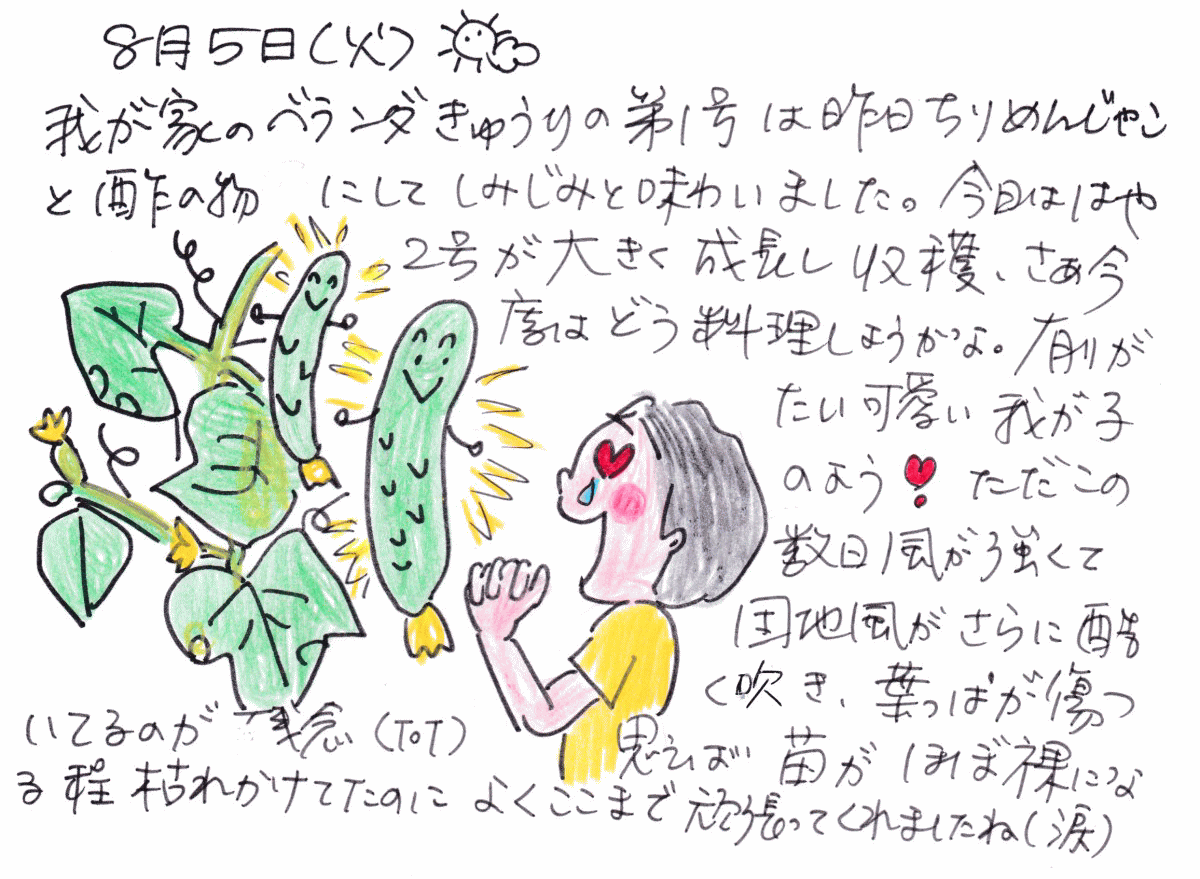 8月5日(火)
我が家のベランダきゅうりの第1号は昨日ちりめんじゃこ
と酢の物 にして しみじみと味わいました。今日ははや
2号が大きく成長し収穫、さぁ今
度はどう料理しようかな。有難が
たい可愛い我が子
のよう❤ ただこの
数日風が強くて
団地風がさらに酷
く吹き、葉っぱが傷つ
いてるのが残念(ToT)
思えば苗がほぼ裸にな
る程枯れかけてたのによくここまで頑張ってくれましたね(涙)